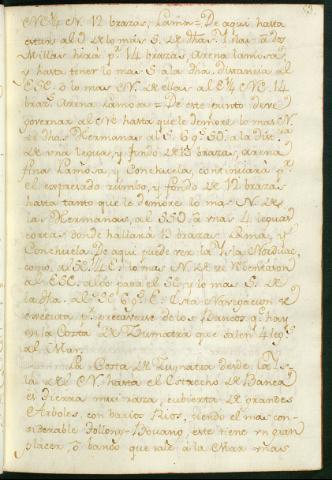 53
NE¼N. 12 brazas, Lama = De aqui hasta
estar al O de lo más S. de dhas. Yslas a dos
Millas hirá pr. 14 brazas, Arena lamosa
y hasta tener lo mas S. a la dha. distancia al
ESE. o lo mas N. de ellas al E¼NE. 14
brazs. Arena lamosa = De este punto deve
governar al N hasta que le demore lo mas N.
de dhas Hermanas al S. 69° SO. a la distcia
de una legua, y fondo de 13 brazas, arena
fina lamosa, y Conchuela, continuará pr.
el expresado rumbo, y fondo de 12 brazas
hasta tanto que le demore lo mas N. de
las Hermanas, al SSO. a más 4 leguas
cortas donde hallará 13 brazas Lama, y
Conchuela. De aqui puede ver la Ysla
como al
al ESE. algo para el SE. y lo mas S. de
la dha. al SE 69° E. Esta Navegacion se
executa pr. precaverse de los Bancos qe. hay
en la Costa de Zumatra que salen 4 legs.
al Mar.
La Costa de Zumatra desde la Ys-
la de N. hasta el Estrecho de Banca
es tierra mui raza, cubierta de grandes
Arboles, con varios Rios, siendo el mas con-
siderable este tiene un gran
placer, o banco que sale a la Mar mas